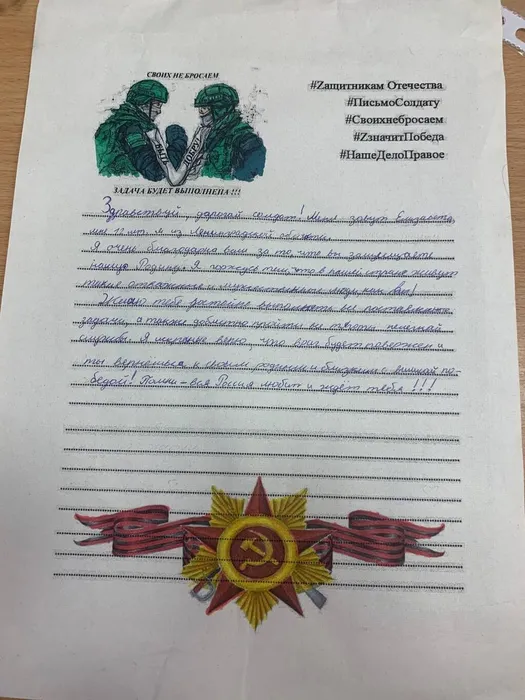 СВОИХ НЕ БРОСАЕМ
ЗАДАЧА БУДЕТ ВЫПОЛНЕНА !!!
#Zащитникам Отечества
#ПисьмоСолдату
#Своихнебросаем
#ZзначитПобеда
#НашеДелоПравое
Здравствуй, дорогой солдат! Меня зовут Елизавета,
мне 12 лет. Я из Ленинградской области.
Я очень благодарна вам за то, что вы защищаете
нашу Родину. Я горжусь тем, что в нашей стране живут
такие отважные и мужественные люди, как вы!
Желаю тебе достойно выполнить все поставленные
задачи, а также доблестно пройти все тяготы нелегкой
службы. Я искренне верю, что враг будет повержен и
ты вернёшься к своим родным и близким с
победой! Помни - вся Россия любит и ждёт тебя!!!